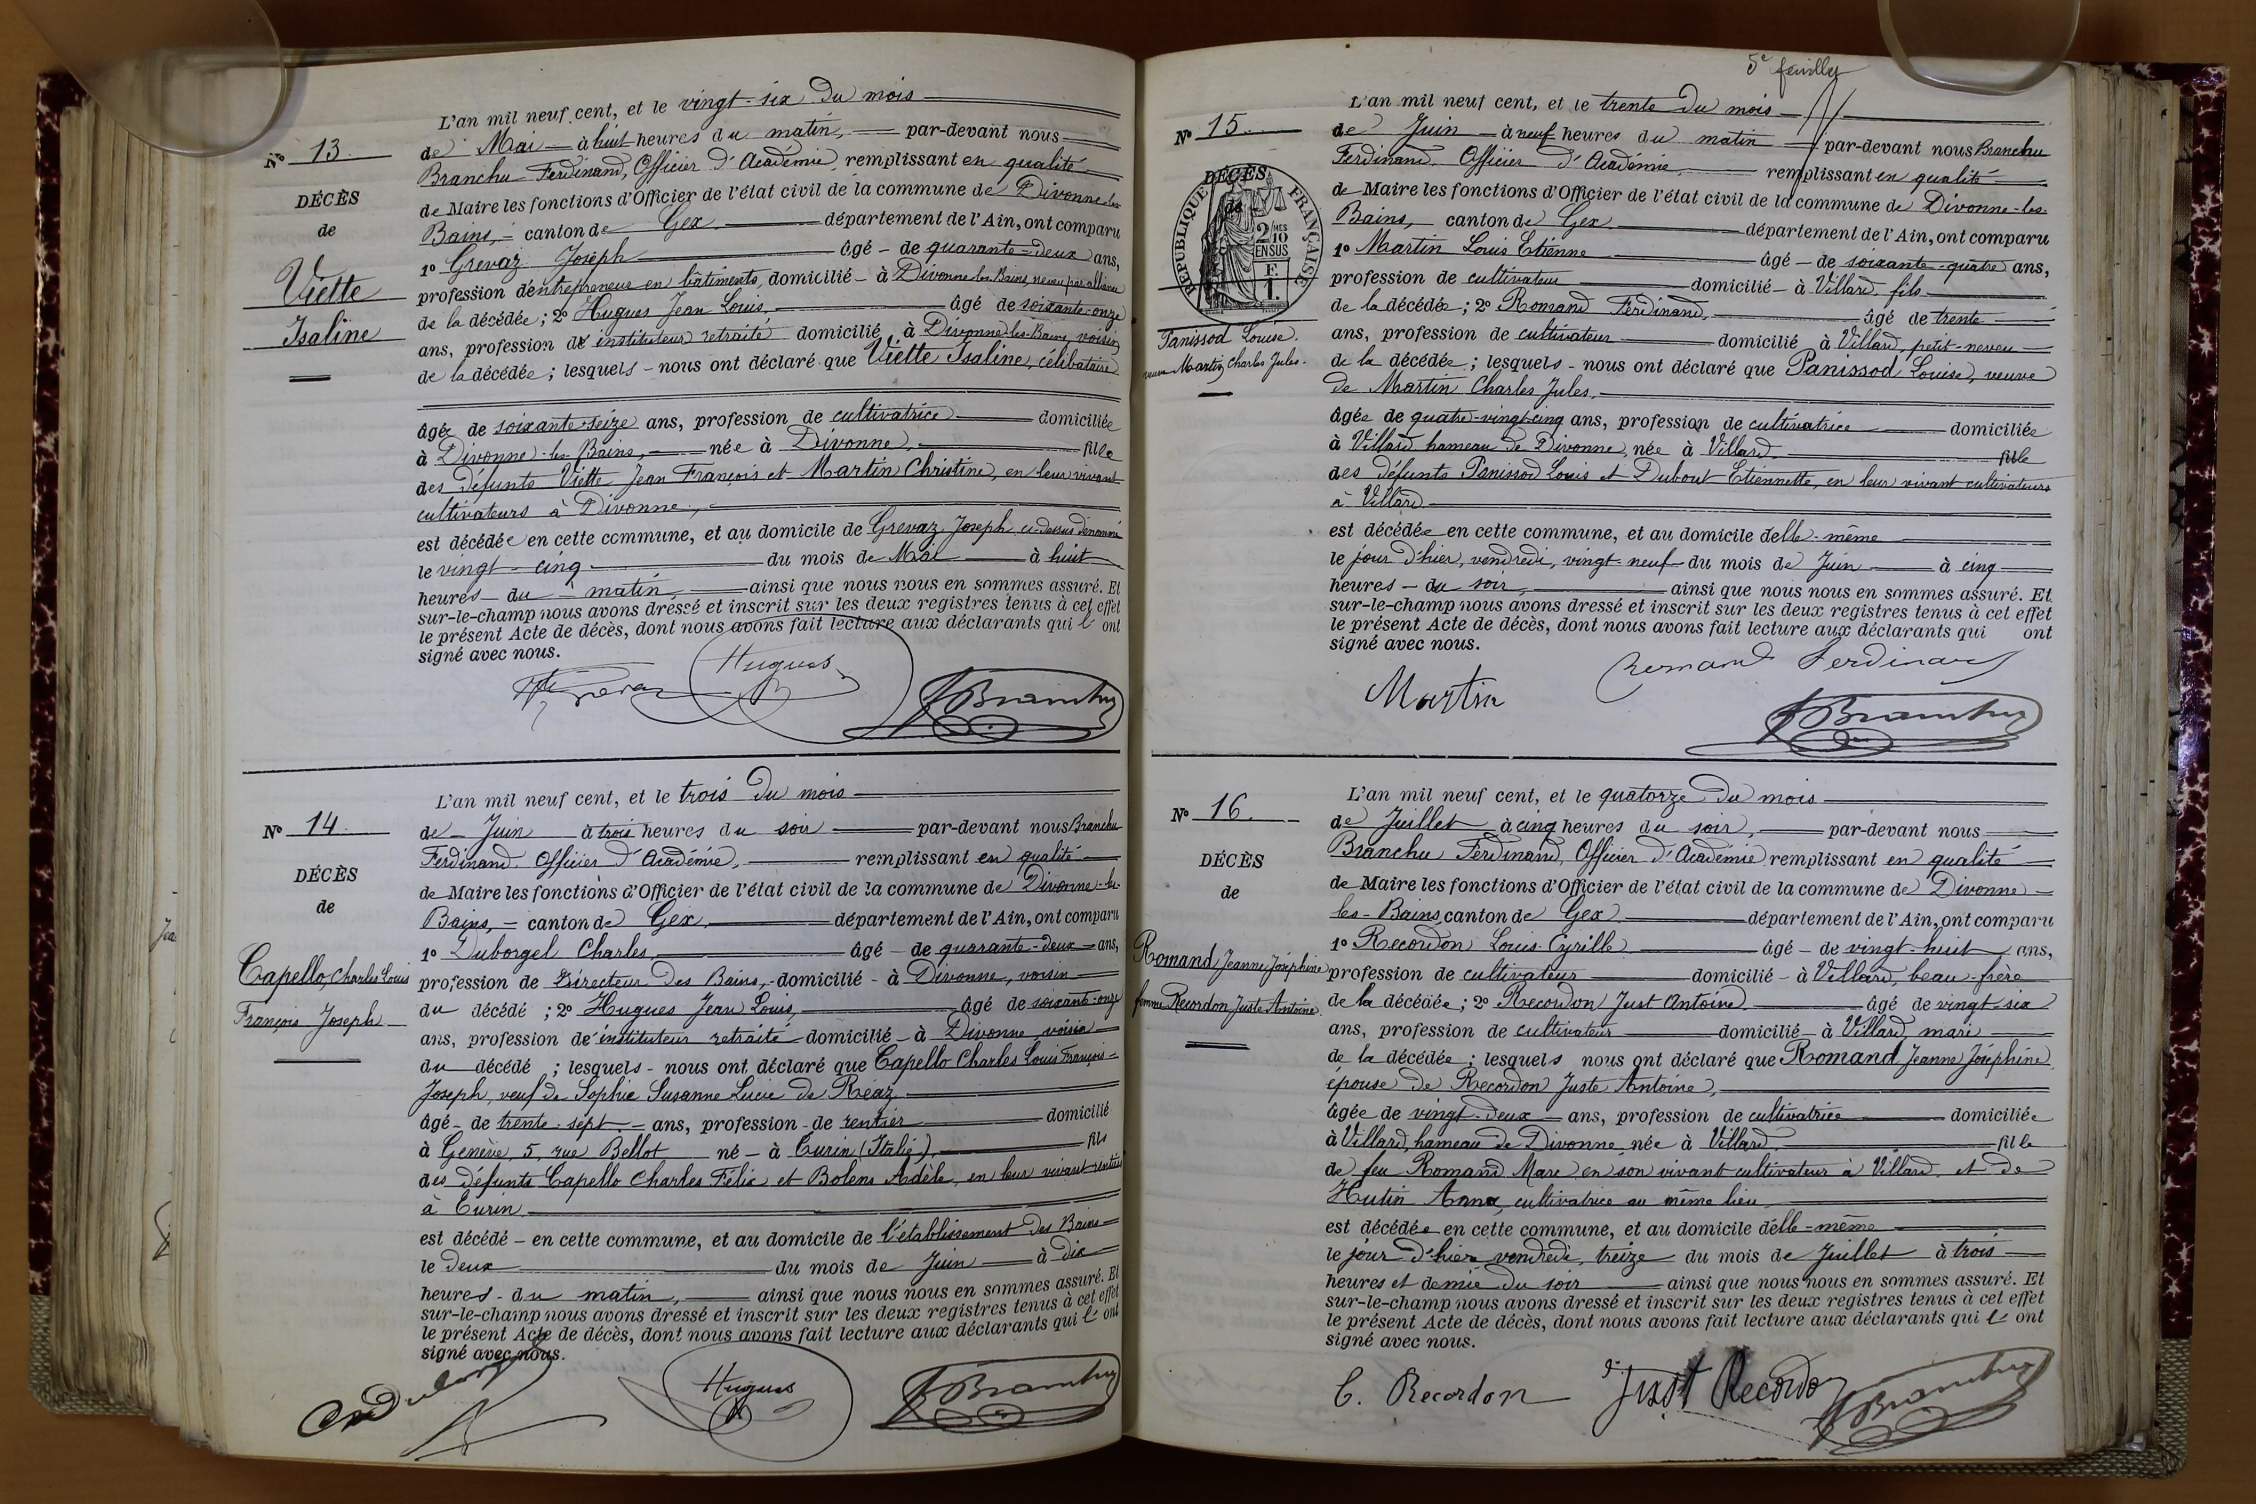 L'an mil neuf cent, et le vingt-six du mois
de Mai à huit heures du matin, par-devant nous
Branchu Ferdinand, Officier d'Académie, remplissant en qualité
de Maire les fonctions d'Officier de l'état civil de la commune de Divonne-les
Bains, canton de Gex département de l'Ain, ont comparu
1º Grevaz Joseph âgé de quarante-deux ans,
profession d'entrepreneur en bâtiments, domicilié à Divonne-les-Bains, neveu par alliance
de la décédée ; 2º Hugues Jean Louis, âgé de soixante-onze
ans, profession de instituteur retraité domicilié à Divonne-les-Bains, voisin
de la décédée ; lesquels nous ont déclaré que Viette Isaline, célibataire
âgée de soixante-seize ans, profession de cultivatrice domiciliée
à Divonne-les-Bains, née à Divonne, fille
des défunts Viette Jean François et Martin Christine, en leur vivant
cultivateurs à Divonne,
est décédée en cette commune, et au domicile de Grevaz Joseph ci-dessus dénommé
le vingt-cinq du mois de Mai à huit
heures du matin, ainsi que nous nous en sommes assuré. Et
sur-le-champ nous avons dressé et inscrit sur les deux registres tenus à cet effet
le présent Acte de décès, dont nous avons fait lecture aux déclarants qui l' ont
signé avec nous.
Nº 13
DÉCÈS
de
Viette
Isaline
Grevaz Hugues Branchu
L'an mil neuf cent, et le trois du mois
de Juin à trois heures du soir par-devant nous Branchu
Ferdinand Officier d'Académie, remplissant en qualité
de Maire les fonctions d'Officier de l'état civil de la commune de Divonne-les-
Bains, canton de Gex département de l'Ain, ont comparu
1º Duborgel Charles âgé de quarante-deux ans,
profession de Directeur des Bains, domicilié à Divonne, voisin
du décédé ; 2º Hugues Jean Louis, âgé de soixante-onze
ans, profession de instituteur retraité domicilié à Divonne, voisin
du décédé ; lesquels nous ont déclaré que Capello Charles Louis François-
Joseph, veuf de Sophie Susanne Lucie de Réaz
âgé de trente-sept ans, profession de rentier domicilié
à Genève, 5, rue Bellot né à Turin (Italie), fils
des défunts Capello Charles Félix et Bolens Adèle, en leur vivant rentiers
à Turin
est décédé en cette commune, et au domicile de l'établissement des Bains
le deux du mois de Juin à dix
heures du matin, ainsi que nous nous en sommes assuré. Et
sur-le-champ nous avons dressé et inscrit sur les deux registres tenus à cet effet
le présent Acte de décès, dont nous avons fait lecture aux déclarants qui l' ont
signé avec nous.
Nº 14
DÉCÈS
de
Capello, Charles Louis
François Joseph
Duborgel Hugues Branchu
5e feuille
L'an mil neuf cent, et le trente du mois
de Juin à neuf heures du matin par-devant nous Branchu
Ferdinand Officier d'Académie, remplissant en qualité
de Maire les fonctions d'Officier de l'état civil de la commune de Divonne-les-
Bains, canton de Gex département de l'Ain, ont comparu
1º Martin Louis Etienne âgé de soixante-quatre ans,
profession de cultivateur domicilié à Villard, fils
de la décédée ; 2º Romand Ferdinand, âgé de trente
ans, profession de cultivateur domicilié à Villard, petit-neveu
de la décédée ; lesquels nous ont déclaré que Panissod Louise, veuve
de Martin Charles Jules,
âgée de quatre-vingt-cinq ans, profession de cultivatrice domiciliée
à Villard hameau de Divonne, née à Villard fille
des défunts Panissod Louis et Dubout Etiennette, en leur vivant cultivateurs
à Villard
est décédée en cette commune, et au domicile d'elle-même
le jour d'hier, vendredi, vingt-neuf du mois de Juin à cinq
heures du soir, ainsi que nous nous en sommes assuré. Et
sur-le-champ nous avons dressé et inscrit sur les deux registres tenus à cet effet
le présent Acte de décès, dont nous avons fait lecture aux déclarants qui ont
signé avec nous.
Nº 15
DÉCÈS
de
RÉPUBLIQUE FRANÇAISE
2/10 MES
EN SUS
F.
1.
Panissod Louise.
veuve Martin, Charles Jules.
Martin Romand Ferdinand
Branchu
L'an mil neuf cent, et le quatorze du mois
de Juillet à cinq heures du soir, par-devant nous
Branchu Ferdinand, Officier d'Académie remplissant en qualité
de Maire les fonctions d'Officier de l'état civil de la commune de Divonne-
les-Bains, canton de Gex département de l'Ain, ont comparu
1º Recordon Louis Cyrille âgé de vingt-huit ans,
profession de cultivateur domicilié à Villard, beau-frère
de la décédée ; 2º Recordon Just Antoine âgé de vingt-six
ans, profession de cultivateur domicilié à Villard, mari
de la décédée ; lesquels nous ont déclaré que Romand Jeanne Joséphine
épouse de Recordon Juste Antoine,
âgée de vingt-deux ans, profession de cultivatrice domiciliée
à Villard, hameau de Divonne née à Villard fille
de feu Romand Marc en son vivant cultivateur à Villard et de
Hutin Anna, cultivatrice au même lieu
est décédée en cette commune, et au domicile d'elle-même
le jour d'hier vendredi, treize du mois de Juillet à trois
heures et demie du soir ainsi que nous nous en sommes assuré. Et
sur-le-champ nous avons dressé et inscrit sur les deux registres tenus à cet effet
le présent Acte de décès, dont nous avons fait lecture aux déclarants qui l' ont
signé avec nous.
Nº 16
DÉCÈS
de
Romand Jeanne Joséphine
femme Recordon Juste Antoine.
C. Recordon Just Recordon Branchu